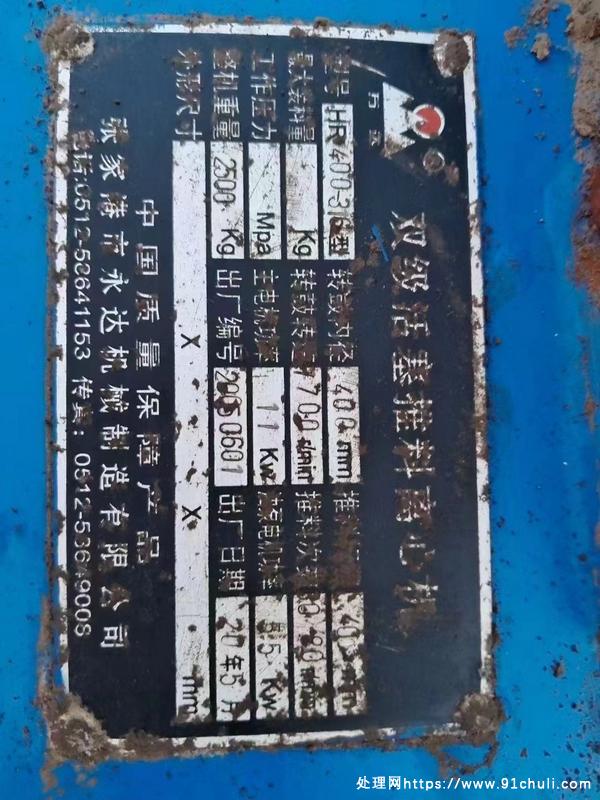 双级活塞推料离心机
型号 HR 400-316型 转鼓内径 400 mm
最大装料量 Kg 转鼓转速 700 r/min 推料次数
工作压力 Mpa 主电机功率 11 Kw 油泵电机功率 Kw
整机重量 2500 Kg 出厂编号 出厂日期 年5月
外形尺寸 X X mm
中国质量保障产品
张家港市永达机械制造有限公司
电话:0512-58641153 传真:
处理网https://www.91chuli.com